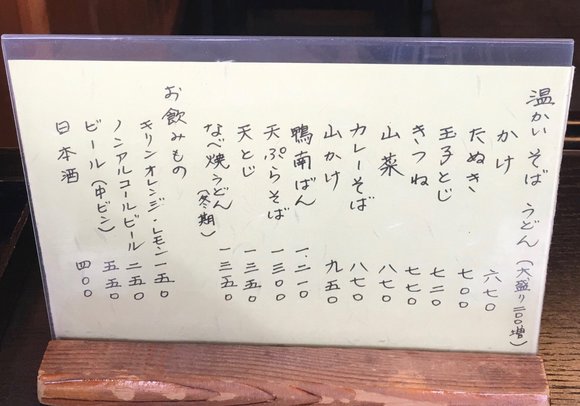 温かい そば うどん（大盛り二〇〇増）
かけ 六七〇
たぬき 七〇〇
玉子とじ 七二〇
きつね 七七〇
山菜 八七〇
カレーそば 八七〇
山かけ 九五〇
鴨南ばん 一、二一〇
天ぷらそば 一三〇〇
天とじ 一三五〇
なべ焼うどん（冬期） 一三五〇
お飲みもの
キリンオレンジ・レモン 一五〇
ノンアルコールビール 二五〇
ビール（中ビン） 五五〇
日本酒 四〇〇